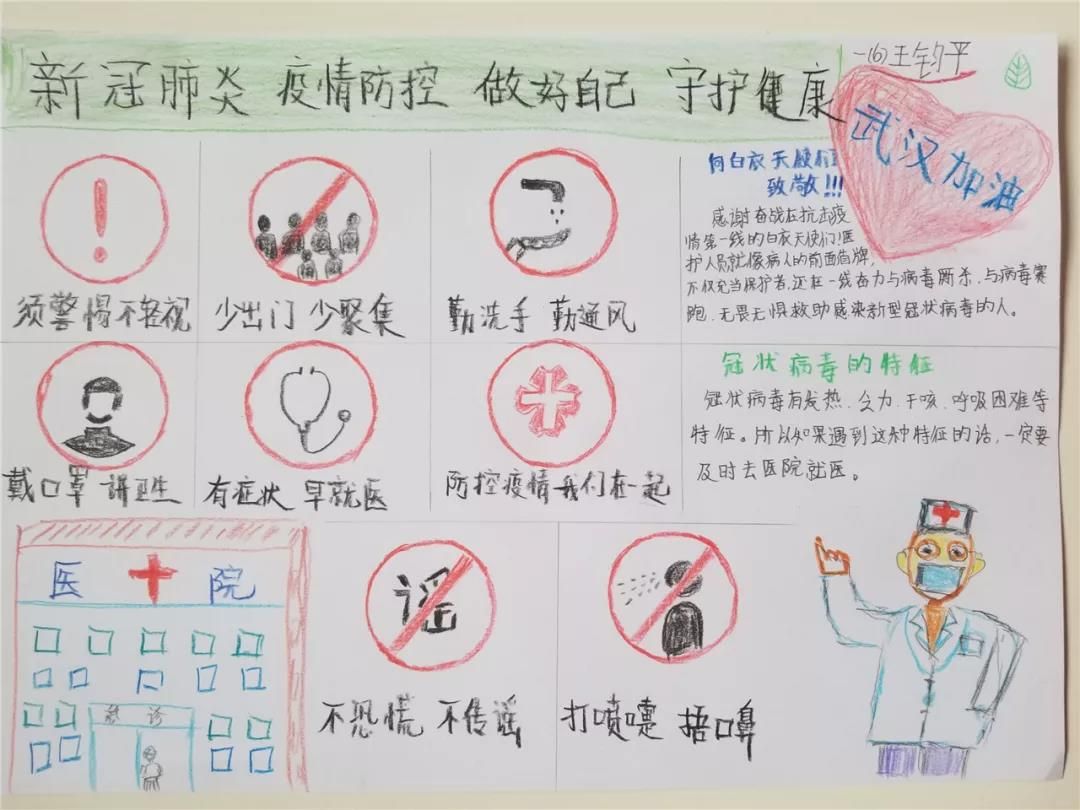 新冠肺炎 疫情防控 做好自己 守护健康
一(6)王钧平
武汉加油
须警惕不轻视
少出门 少聚集
勤洗手 勤通风
向白衣天使们
致敬!!!
感谢奋战在抗击疫
情第一线的白衣天使们!医
护人员就像病人的前面盾牌,
不仅充当保护者,还在一线奋力与病毒厮杀,与病毒赛
跑,无畏无惧救助感染新型冠状病毒的人。
戴口罩 讲卫生
有症状 早就医
防控疫情我们在一起
冠状病毒的特征
冠状病毒有发热、乏力、干咳、呼吸困难等
特征。所以如果遇到这种特征的话,一定要
及时去医院就医。
医 院
急 诊
谣
不恐慌 不传谣
打喷嚏 捂口鼻